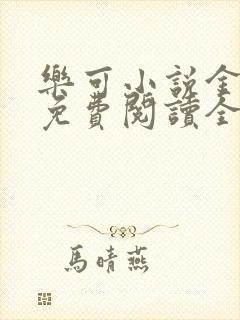 樂可小說全
免費閱讀全
馬晴燕